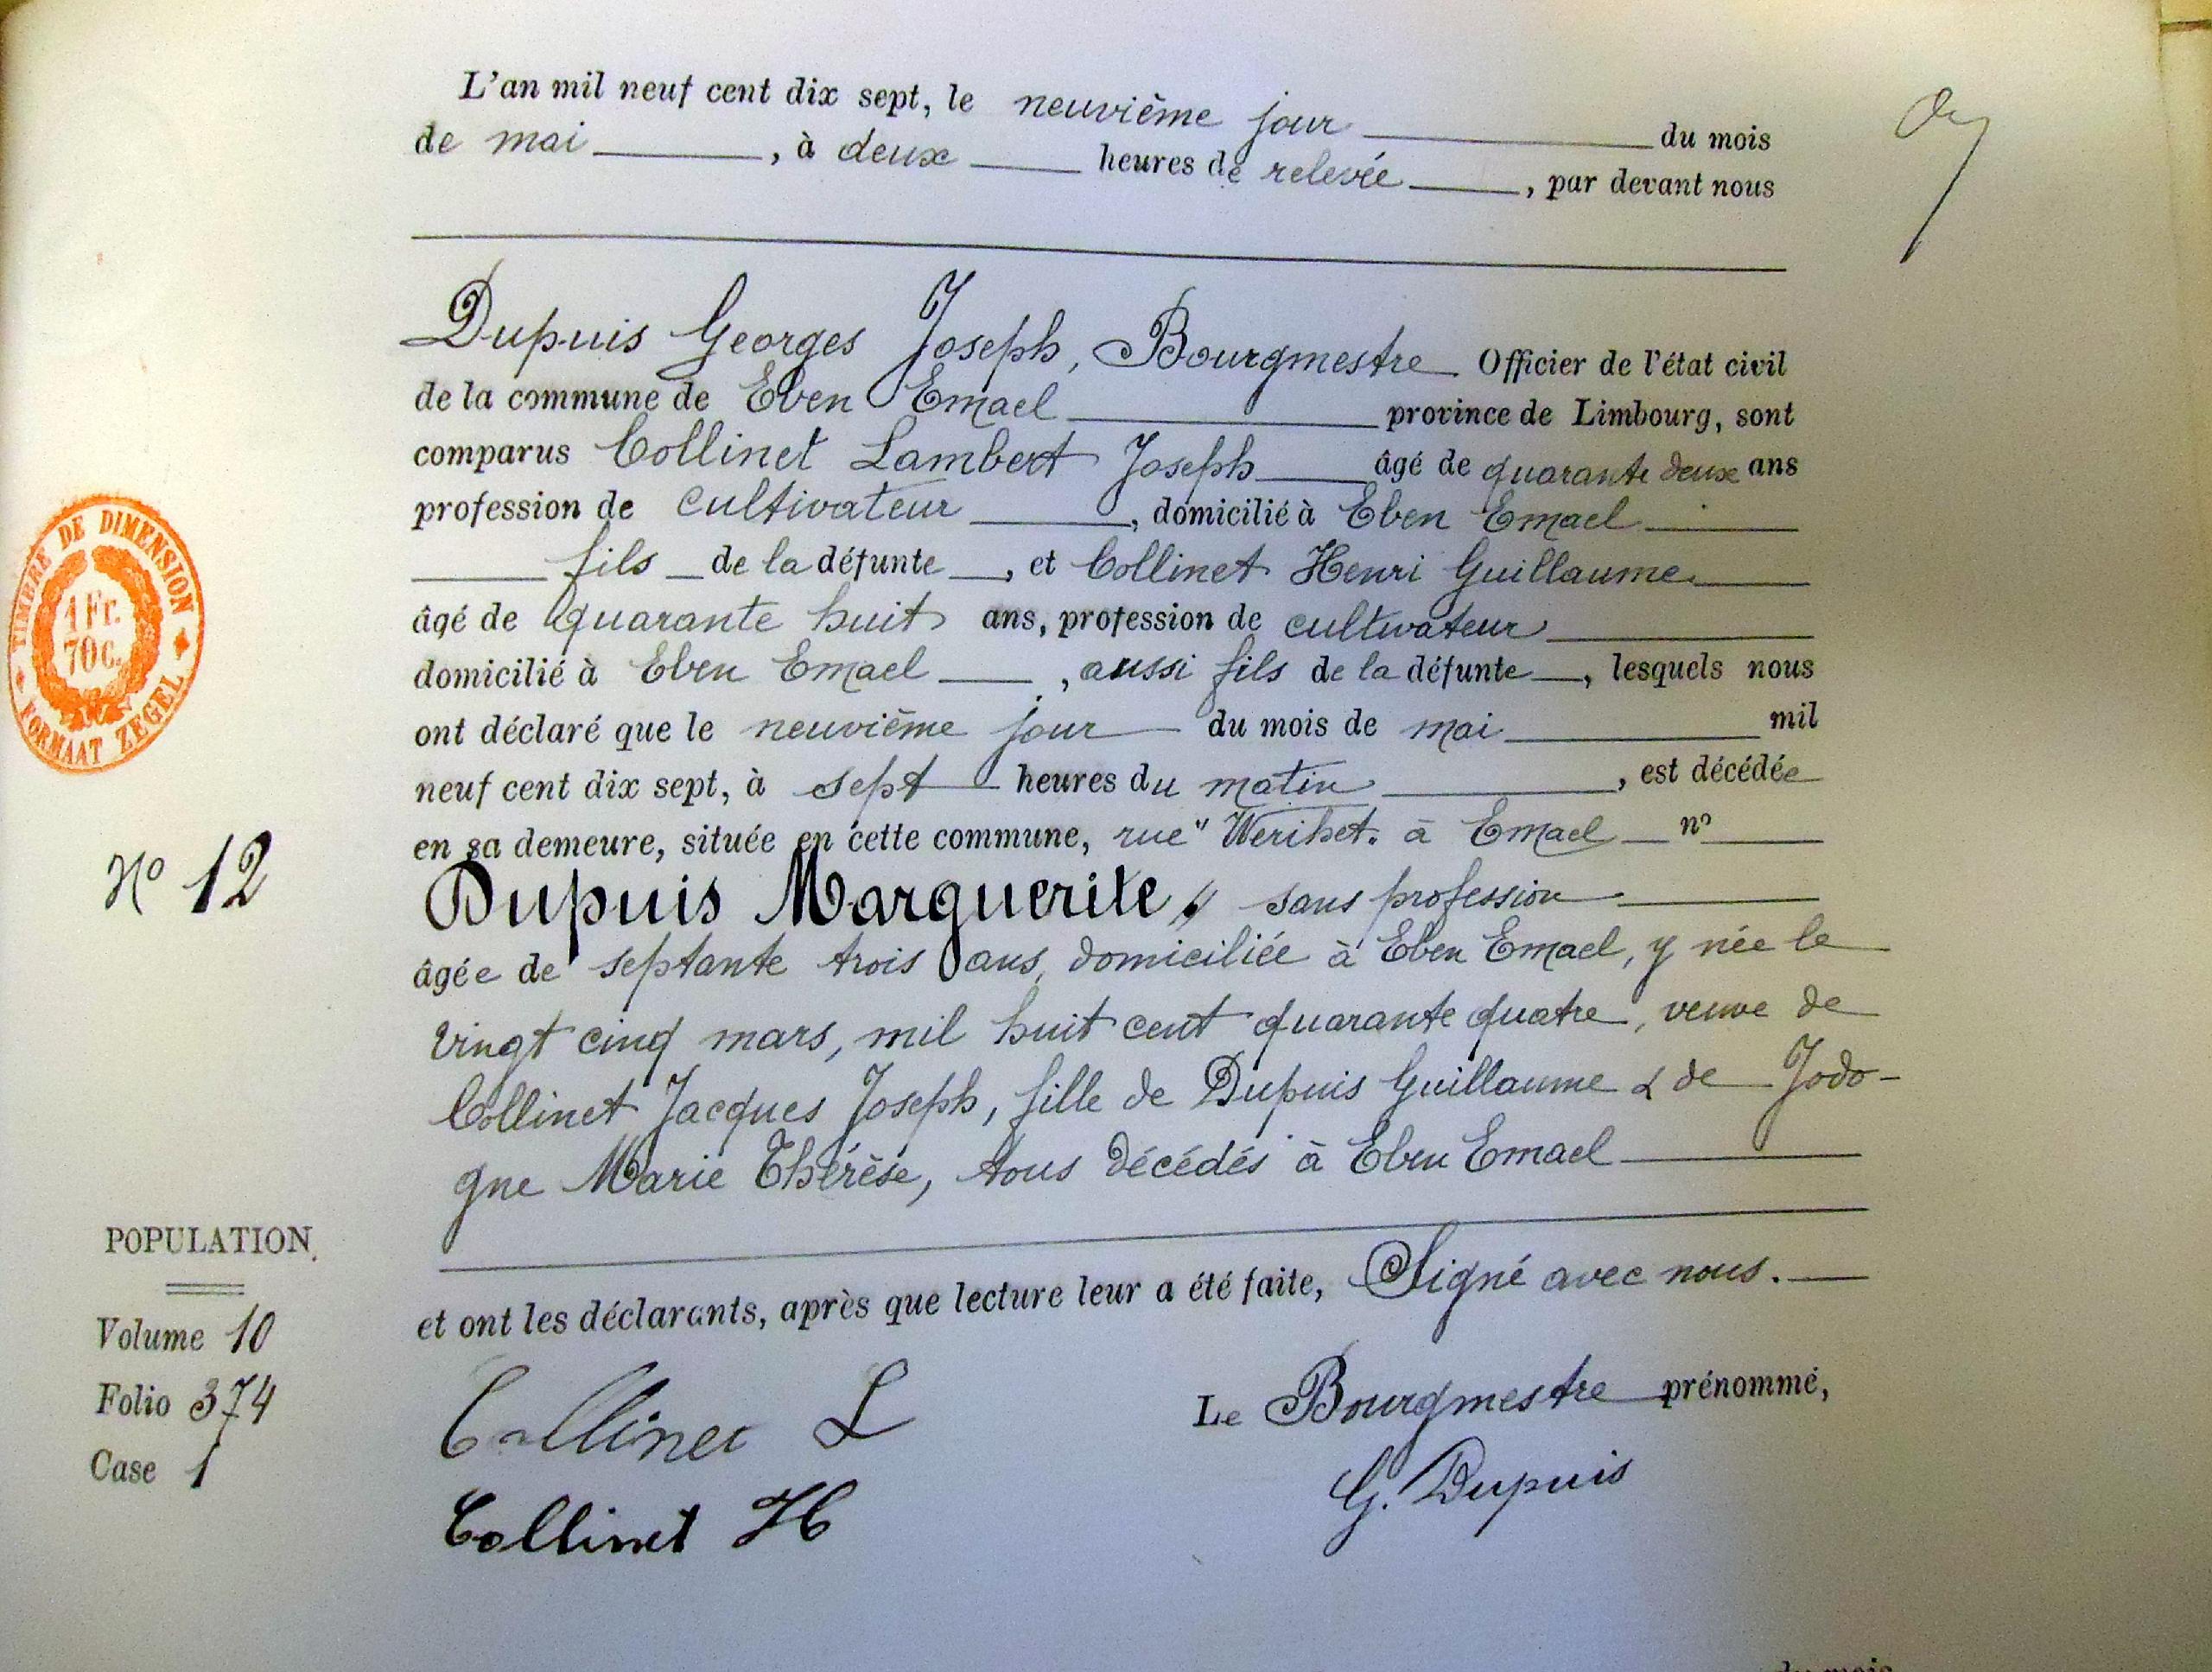 L'an mil neuf cent dix sept, le neuvième jour du mois
de mai, à deux heures de relevée, par devant nous
Dupuis Georges Joseph, Bourgmestre Officier de l'état civil
de la commune de Eben Emael province de Limbourg, sont
comparus Collinet Lambert Joseph âgé de quarante deux ans
profession de cultivateur, domicilié à Eben Emael
fils de la défunte, et Collinet Henri Guillaume
âgé de quarante huit ans, profession de cultivateur
domicilié à Eben Emael, aussi fils de la défunte, lesquels nous
ont déclaré que le neuvième jour du mois de mai mil
neuf cent dix sept, à sept heures du matin, est décédée
en sa demeure, située en cette commune, rue "Werihet. à Emael n°
Dupuis Marguerite, sans profession
âgée de septante trois ans, domiciliée à Eben Emael, y née le
vingt cinq mars, mil huit cent quarante quatre, veuve de
Collinet Jacques Joseph, fille de Dupuis Guillaume & de Jodo-
gne Marie Thérèse, tous décédés à Eben Emael
et ont les déclarants, après que lecture leur a été faite, Signé avec nous.
Collinet L
Collinet H
Le Bourgmestre prénommé,
G. Dupuis
TIMBRE DE DIMENSION
1 Fr.
70 c.
FORMAAT ZEGEL
N° 12
POPULATION.
Volume 10
Folio 374
Case 1
du mois